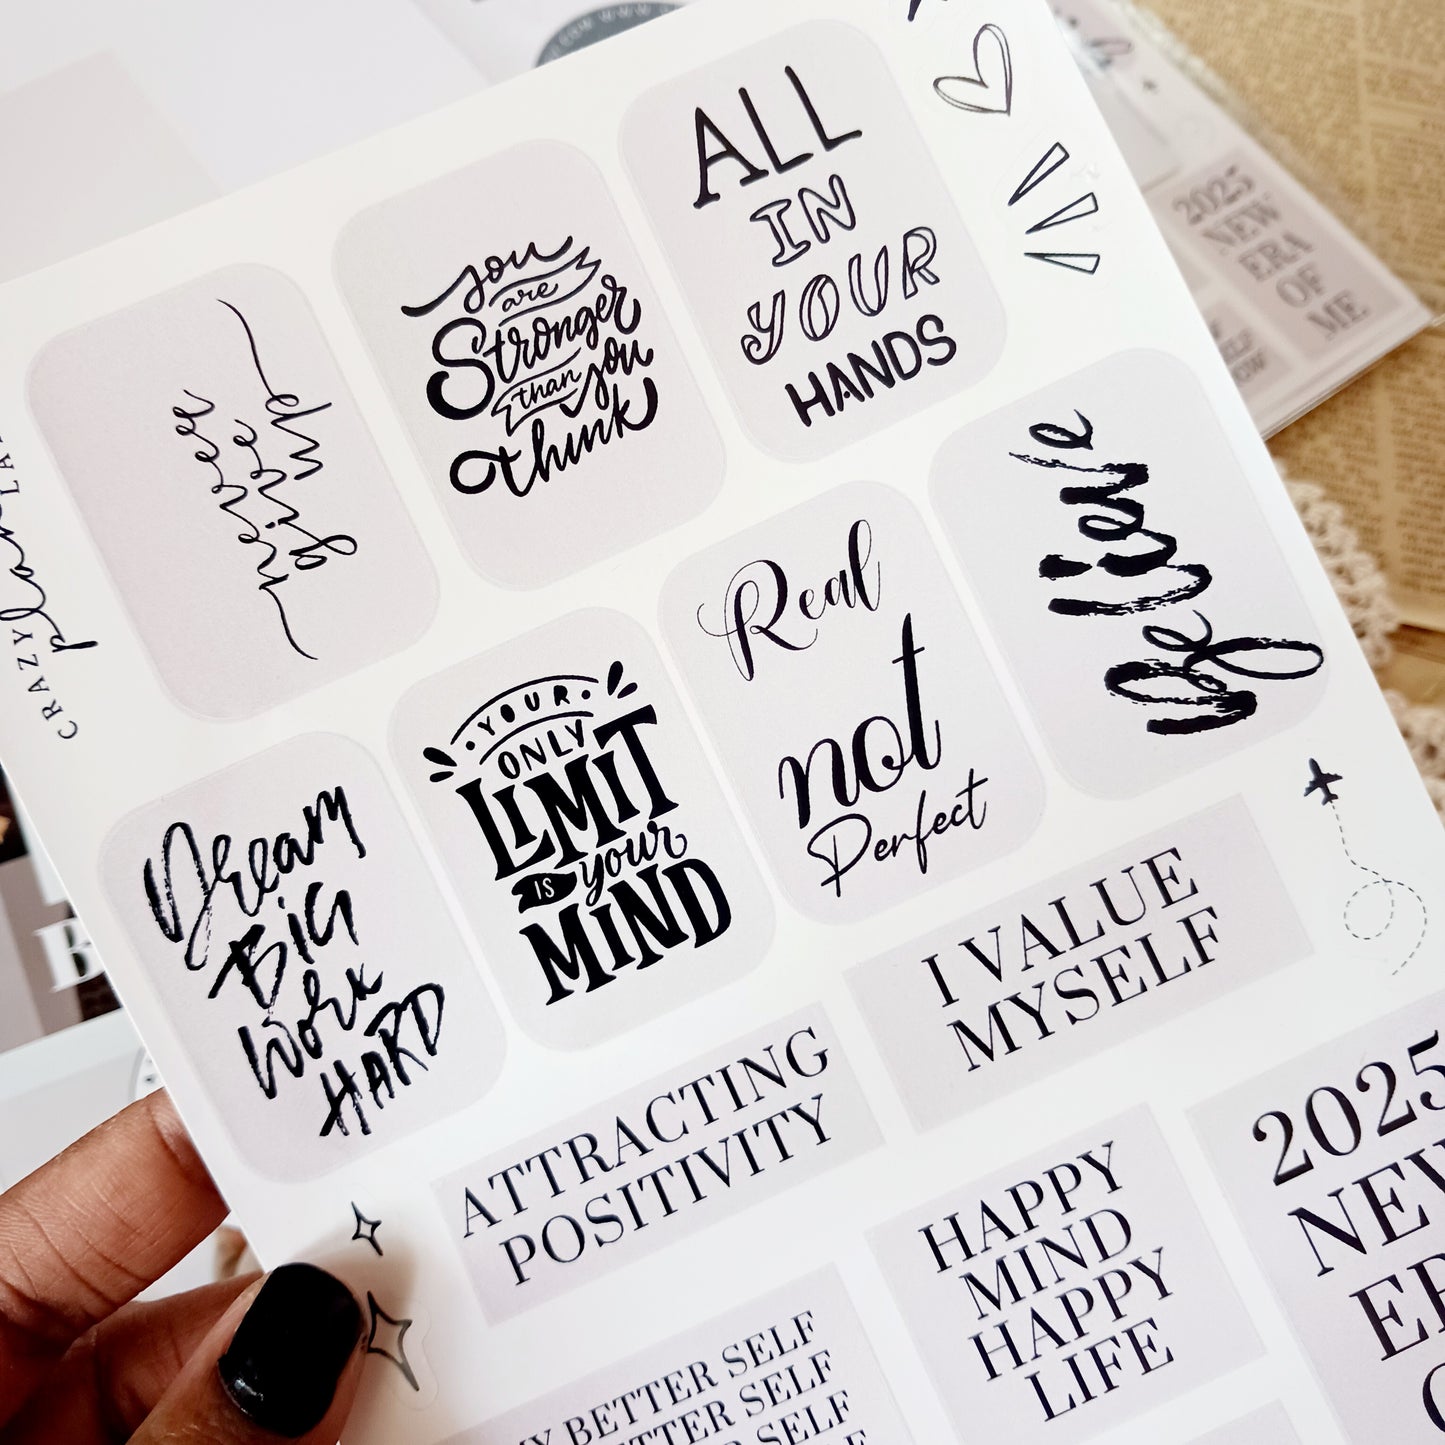 never
give up
you
are
Stronger
than you
think
ALL
IN
YOUR
HANDS
Dream
BIG
Work
HARD
YOUR
ONLY
LIMIT
IS your
MIND
Real
not
Perfect
Believe
I VALUE
MYSELF
ATTRACTING
POSITIVITY
HAPPY
MIND
HAPPY
LIFE
2025
BETTER SELF
SELF
SELF
CRAZY
2025
NEW
ERA
OF
ME